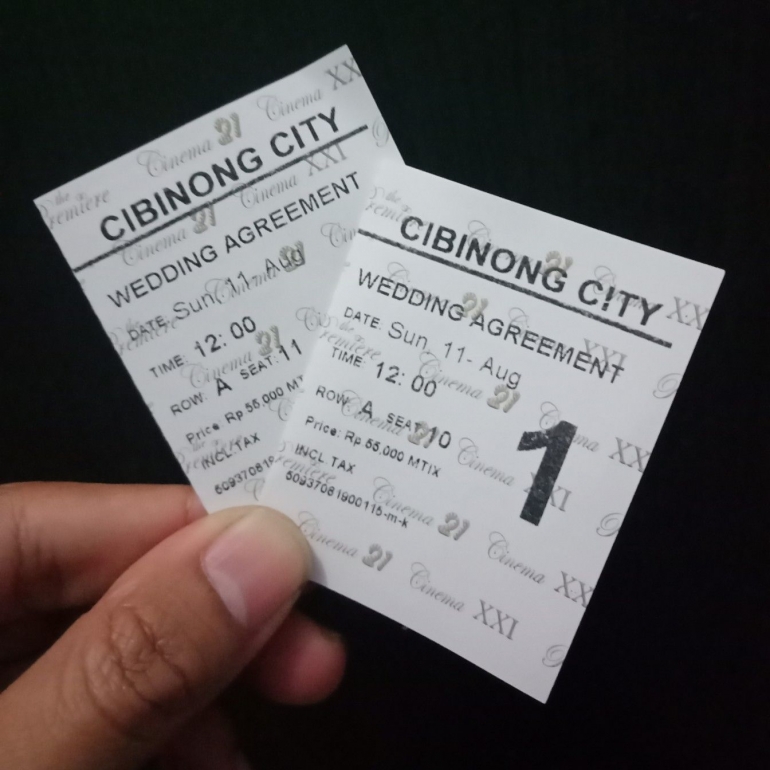 CIBINONG CITY
WEDDING AGREEMENT
DATE: Sun, 11- Aug
TIME: 12: 00
ROW: A SEAT: 11
Price: Rp 55,000
INCL.TAX
CIBINONG CITY
WEDDING AGREEMENT
DATE: Sun, 11- Aug
TIME: 12: 00
ROW: A SEAT: 10
Price: Rp 55,000 MTIX
INCL.TAX
50937081900115-m-k
1
the Premiere
Cinema 21
Cinema XXI